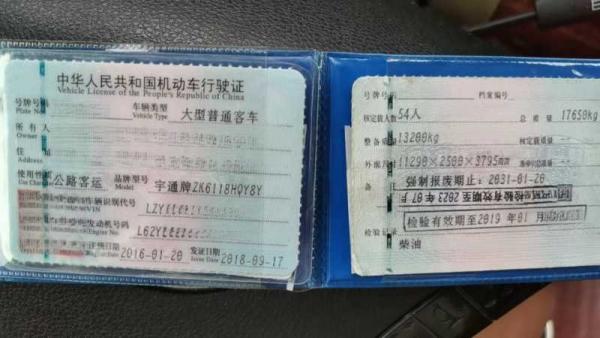 中华人民共和国机动车行驶证
Vehicle License of the People's Republic of China
号牌号码
Plate No.
车辆类型 大型普通客车
Vehicle Type
所有人
Owner
住址
Address
使用性质 公路客运 品牌型号 宇通牌ZK6118HQY8Y
Use Character Model
车辆识别代号 LZY
VIN
发动机号码 L62Y
Engine No.
注册日期 2016-01-20 发证日期 2018-09-17
Issue Date
号牌号码 档案编号
核定载人数 54人 总质量 17650kg
整备质量 13200kg 核定载质量
外廓尺寸 11290×2500×3795mm
备注 强制报废期止:2031-01-20
检验有效期至 2023 年 07
检验有效期至2019 年 01 月
检验记录
柴油